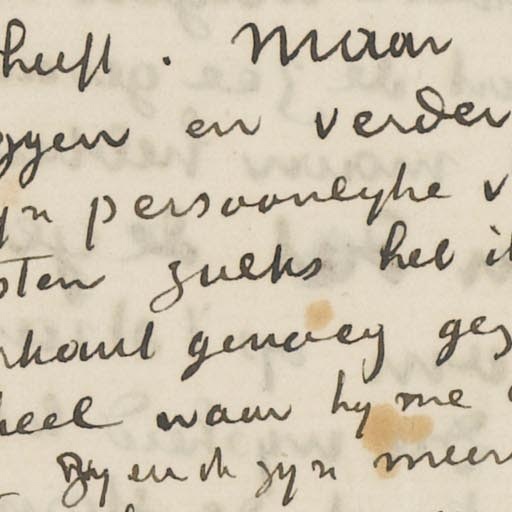 heeft. Maar
ggen en verder
yn persoonlyke v
sten zulks heb i
rkant genoeg gez
heel waar hy me
Hy en ik zyn meer